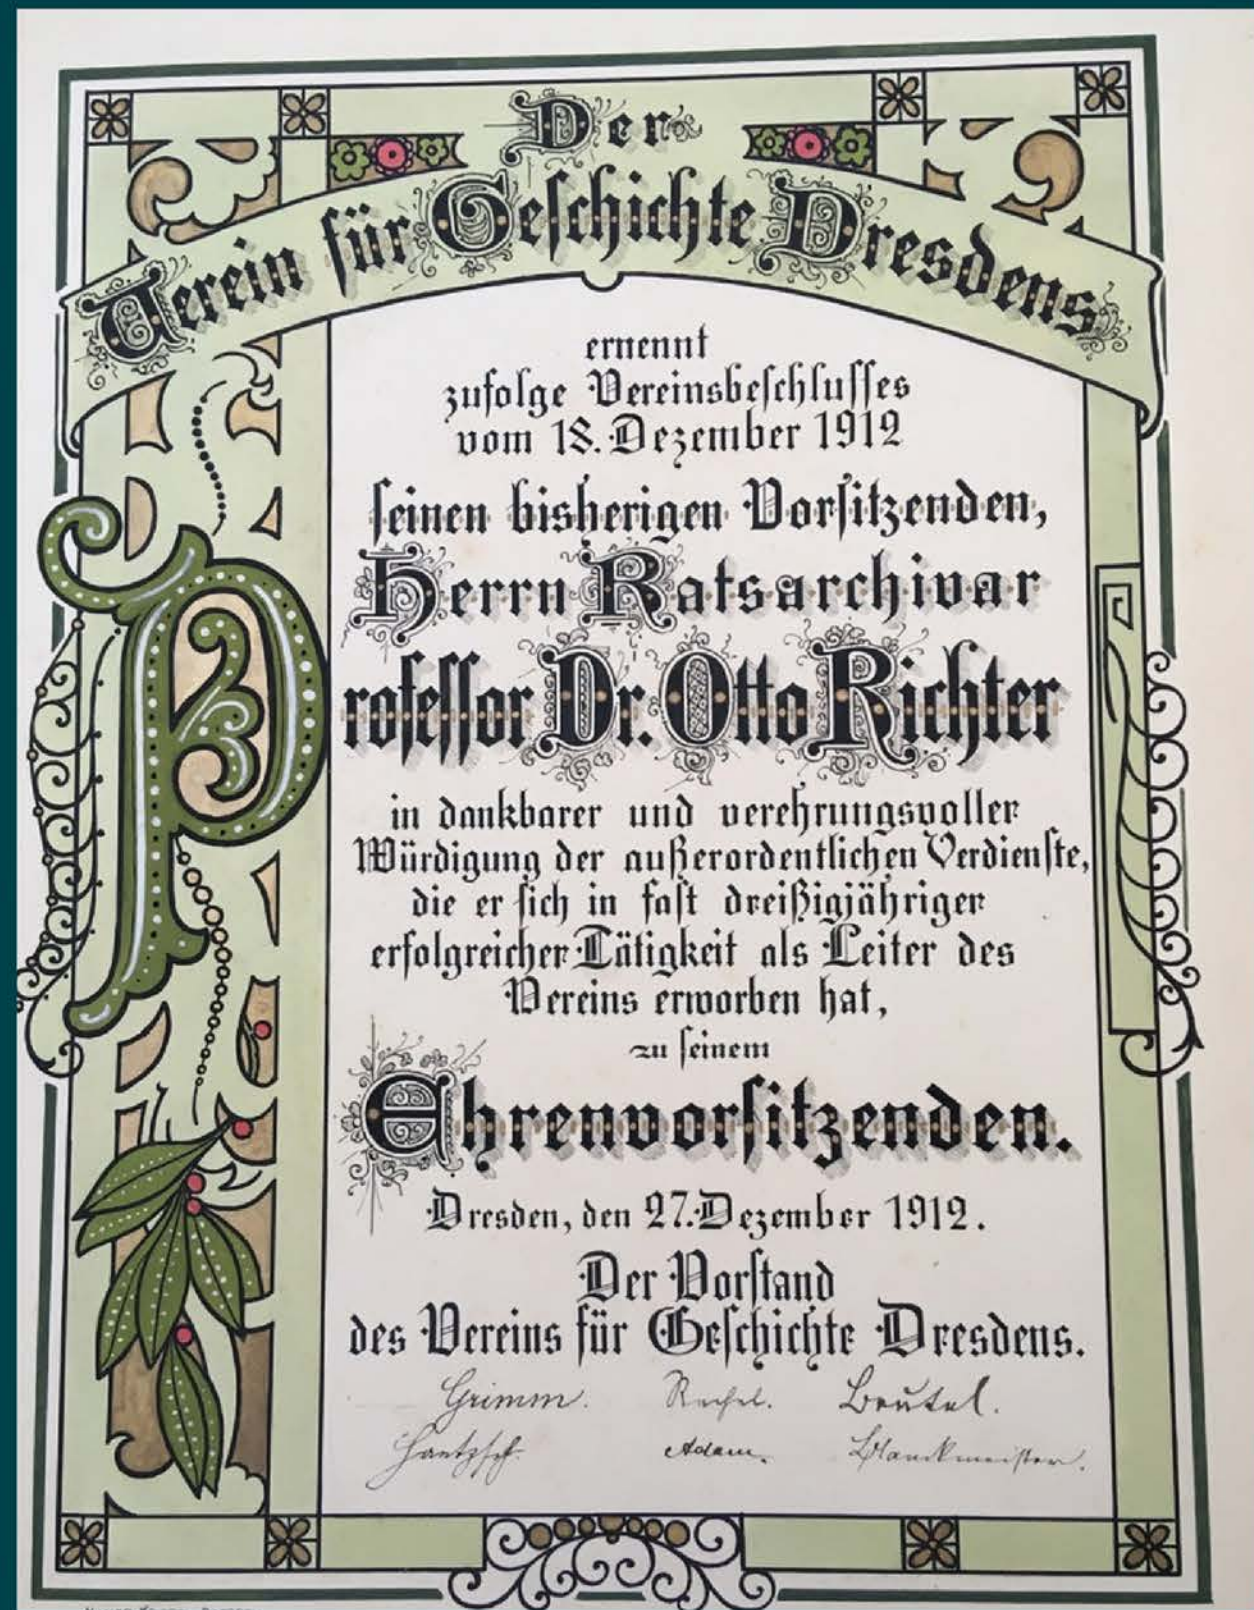 Der
Verein für Geschichte Dresdens
ernennt
zufolge Vereinsbeschlusses
vom 18. Dezember 1912
seinen bisherigen Vorsitzenden,
Herrn Ratsarchivar
Professor Dr. Otto Richter
in dankbarer und verehrungsvoller
Würdigung der außerordentlichen Verdienste,
die er sich in fast dreißigjähriger
erfolgreicher Tätigkeit als Leiter des
Vereins erworben hat,
zu seinem
Ehrenvorsitzenden.
Dresden, den 27. Dezember 1912.
Der Vorstand
des Vereins für Geschichte Dresdens.
Grimm. Rachel. Beutel.
Hantzsch. Adam. Blanckmeister.